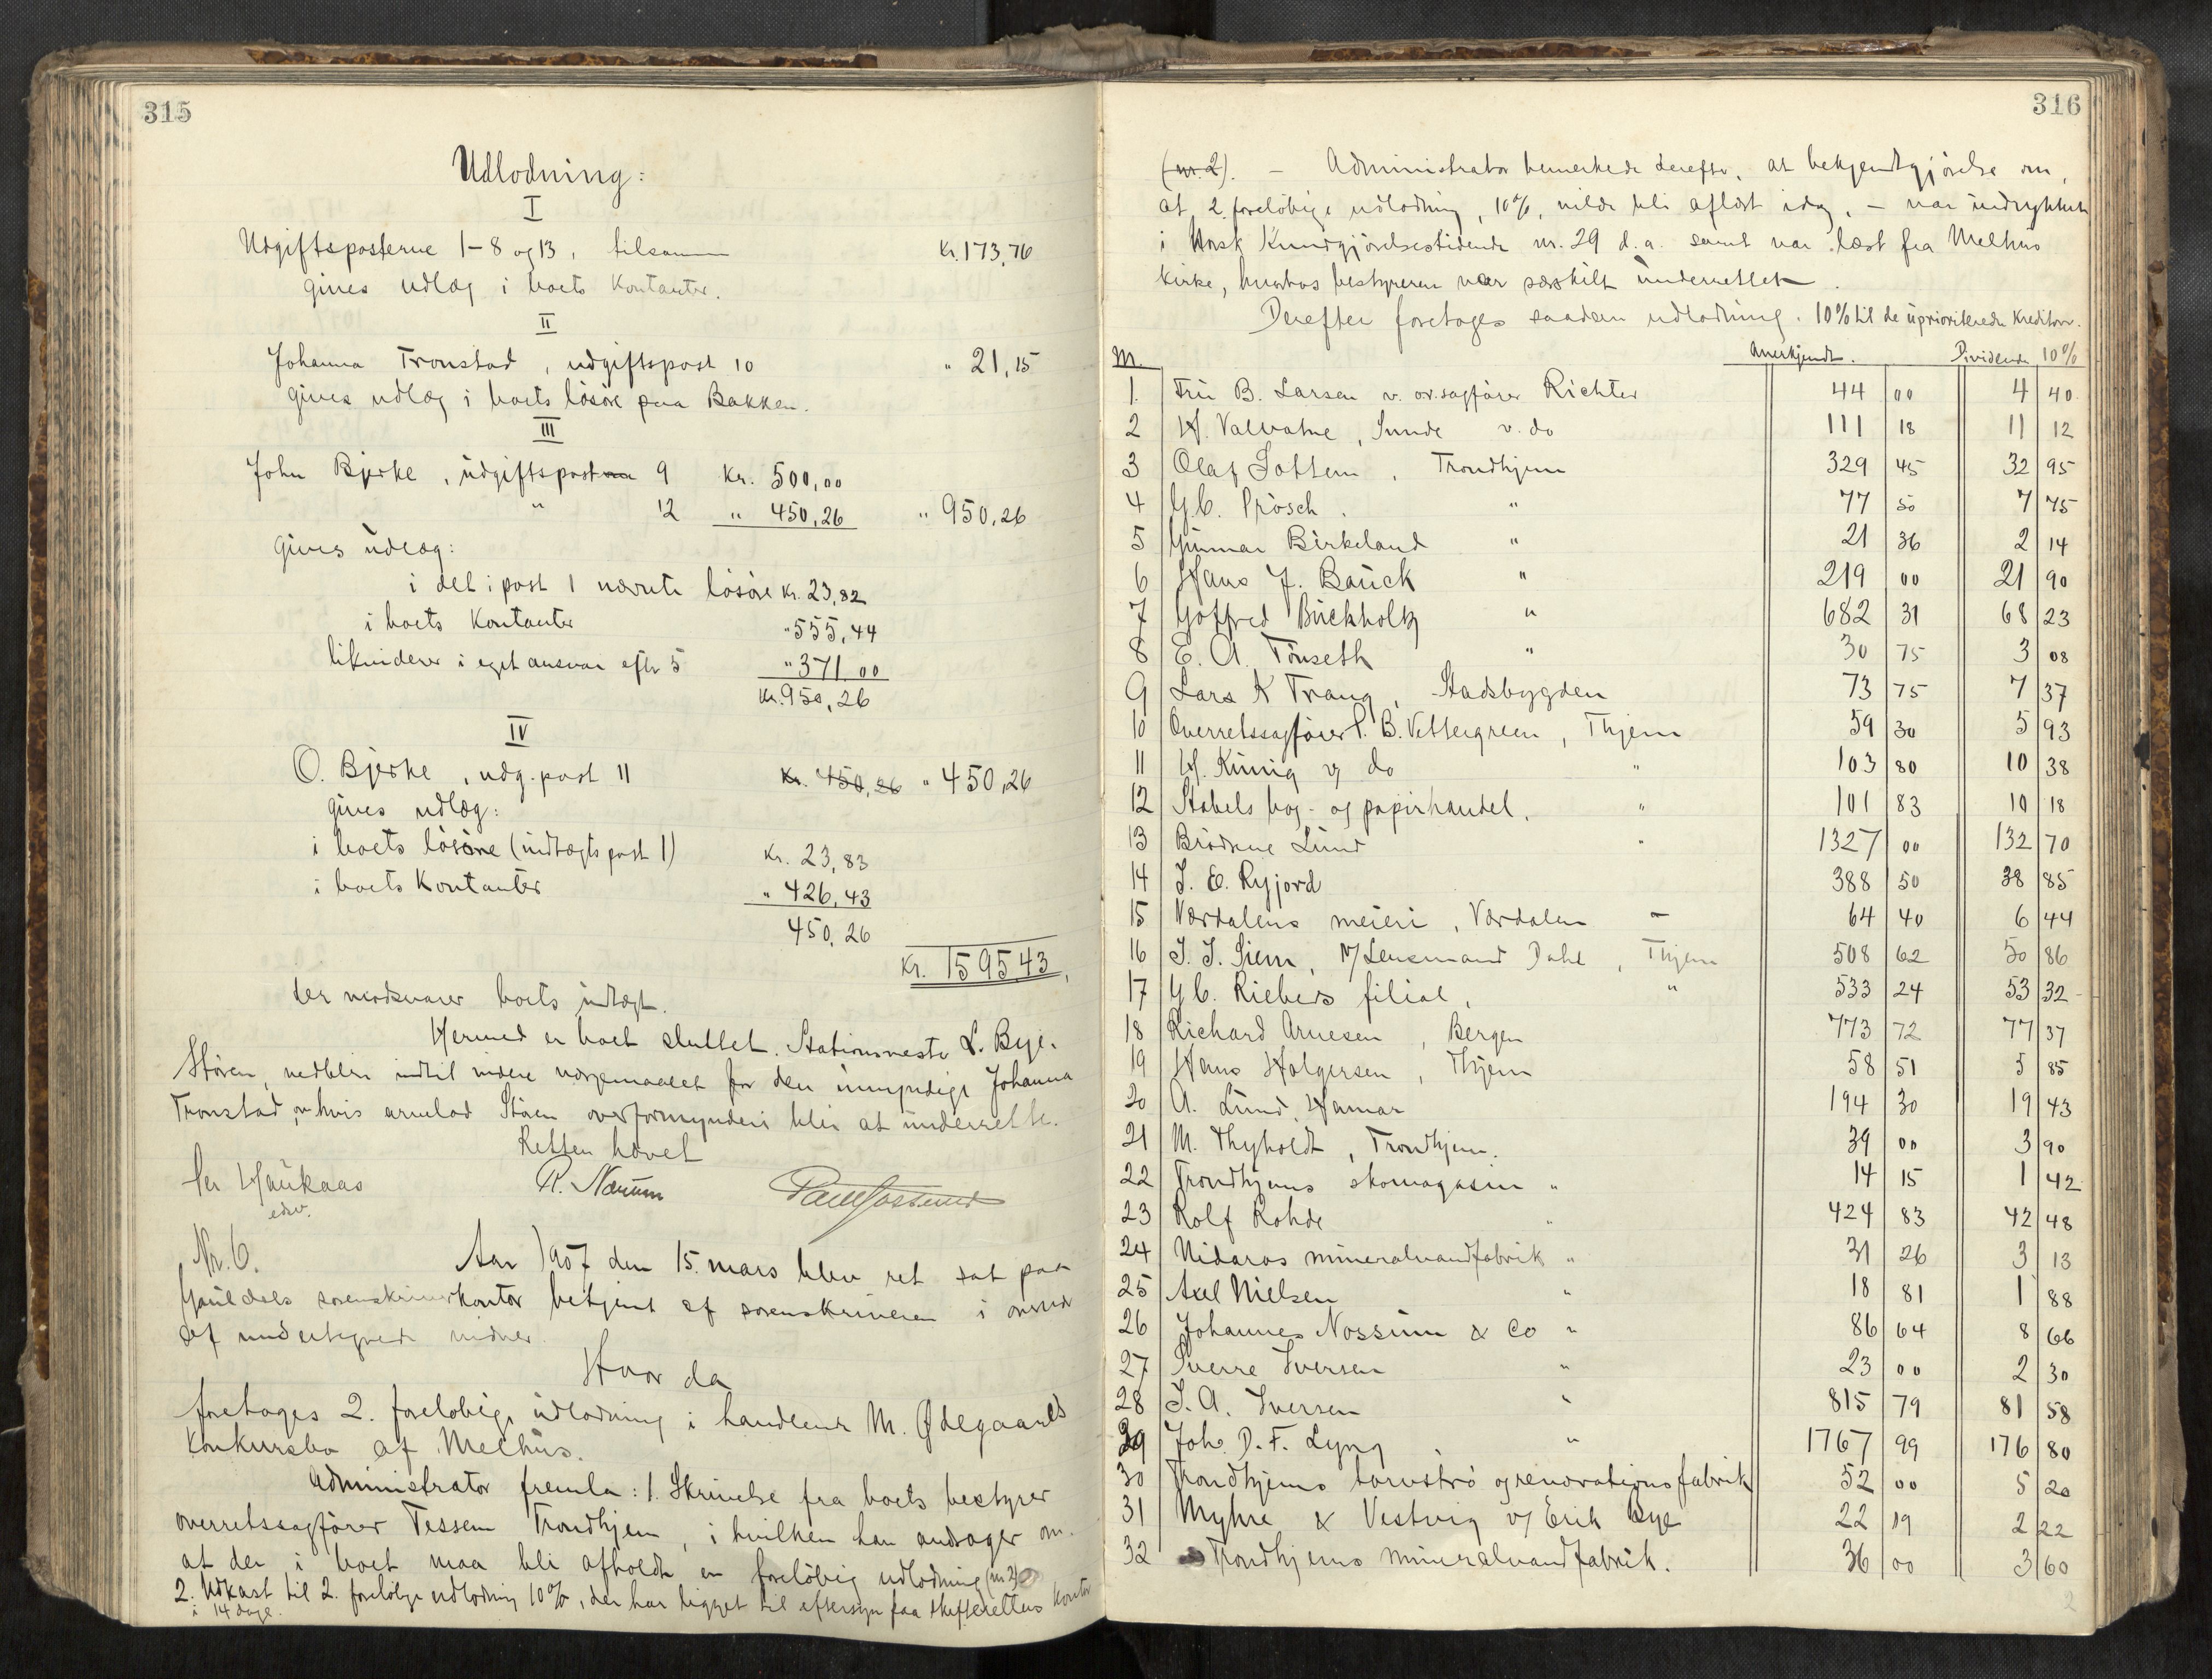 315
Udlodning:
I
Udgiftsposterne 1-8 og 13, tilsammen Kr. 173,76
gives udlæg i boets Kontanter.
II
Johanna Tronstad, udgiftspost 10 " 21,15
gives udlæg i boets løsøre paa Bakken.
III
John Bjerke, udgiftspost 9 Kr. 500,00
" 12 " 450,26 " 950,26
gives udlæg:
i det i post 1 nævnte løsøre Kr. 23,82
i boets Kontanter " 555,44
likviderer i eget ansvar efter 5 " 371 00
Kr. 950,26
IV
O. Bjerke, udg. post 11 Kr. 450,26 " 450,26
gives udlæg:
i boets løsøre (indtægts post 1) Kr. 23,83
i boets Kontanter " 426,43
450,26
Kr. 1595,43,
der modsvarer boets indtægt.
Hermed er boet sluttet. Stationsmester L. Bye,
Støren, vedbliver indtil videre værgemaalet for den umyndige Johanna
Tronstad, om hvis arvelod Støren overformynderi blir at underrette.
Retten hævet
Per Haukaas R. Nærum
edsv.
Nr. 6. Aar 1907 den 15. mars blev ret sat paa
Guldals sorenskriverkontor betjent af sorenskriveren i overvær
af undertegnede vidner.
Hvor da
foretoges 2. foreløbige udlodning i handlende M. Ødegaards
Konkursbo af Melhus.
Administrator fremla: 1. Skrivelse fra boets bestyrer
overretssagfører Tessem Trondhjem, i hvilken han andrager om
at der i boet maa bli afholdt en foreløbig udlodning (nr 2)
2. Udkast til 2. foreløbige udlodning 10%, der har ligget til eftersyn paa skifterettens Kontor
i 14 dage.
316
(nr. 2). - Administrator bemerkede derefter, at bekjendtgjørelse om,
at 2. foreløbige udlodning, 10%, vilde bli afholdt idag, - var indrykket
i Norsk Kundgjørelsestidende nr. 29 d.a. samt var læst fra Melhus
kirke, hvorhos bestyreren var særskilt underrettet.
Derefter foretoges saadan udlodning. 10% til de uprioriterede Kreditorer.
Nr. Anerkjendt. Dividende 10%
1. Fru B. Larsen v. ov.sagfører Richter 44 00 4 40
2 H. Valvatne, Sunde v. do 111 18 11 12
3 Olaf Lottem, Trondhjem 329 45 32 95
4 G.C. Prösch. " 77 50 7 75
5 Gunnar Birkeland " 21 36 2 14
6 Hans J. Bauck " 219 00 21 90
7 Gotfred Buckholtz " 682 31 68 23
8 E. A. Tønseth " 30 75 3 08
9 Lars K Trang, Stadsbygden 73 75 7 37
10 Overretssagfører P. B. Vettergreen, Thjem 59 30 5 93
11 H. Künig v/ do " 103 80 10 38
12 Stabels bog- og papirhandel. " 101 83 10 18
13 Brødrene Lund " 1327 00 132 70
14 J. E. Ryjord 388 50 38 85
15 Værdalens meieri, Værdalen - 64 40 6 44
16 J. J. Siem, v/ Lensmand Dahl, Thjem 508 62 50 86
17 G.C. Riebers filial, " 533 24 53 32
18 Richard Arnesen, Bergen 773 72 77 37
19 Hans Holgersen, Thjem 58 51 5 85
20 A. Lund, Hamar 194 30 19 43
21 M. Thyholdt, Trondhjem. 39 00 3 90
22 Trondhjems skomagasin " 14 15 1 42
23 Rolf Rohde " 424 83 42 48
24 Nidaros mineralvandfabrik " 31 26 3 13
25 Axel Nielsen " 18 81 1 88
26 Johannes Nossum & Co " 86 64 8 66
27 Sverre Iversen " 23 00 2 30
28 J. A. Iversen " 815 79 81 58
29 Joh. D. F. Lyng " 1767 99 176 80
30 Trondhjems torvstrø og renovationsfabrik 52 00 5 20
31 Myhre & Vestvig v/ Erik Bye 22 19 2 22
32 Trondhjems mineralvandfabrik. 36 00 3 60